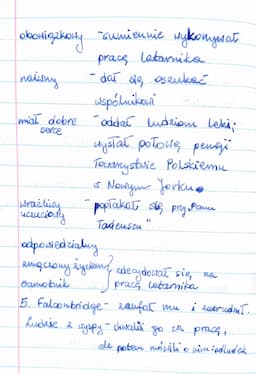 obowiązkowy - sumiennie wykonywał
pracę latarnika
naiwny - dał się oszukać
wspólnikowi
miał dobre - oddał ludziom leki;
serce
wysłał połowę pensji
Towarzystwie Polskiemu
w Nowym Jorku.
wrażliwy - popłakał się przy „Panu
uczuciowy
Tadeuszu"
odpowiedzialny
zmęczony życiem } zdecydował się na
samotnik pracę latarnika
5. Falconbridge - zaufał mu i zatrudnił.
Ludzie z wyspy - chwalili go za pracę,
ale potem mówili o nim